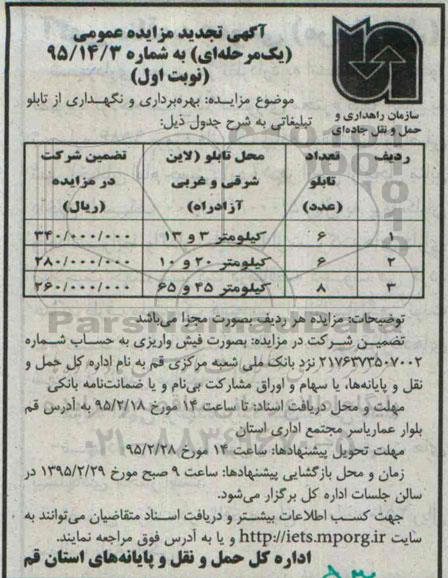 آگهی تجدید مزایده عمومی
(یک‌مرحله‌ای) به شماره ۹۵/۱۴/۳
(نوبت اول)
سازمان راهداری و
حمل و نقل جاده‌ای
موضوع مزایده: بهره‌برداری و نگهداری از تابلو
تبلیغاتی به شرح جدول ذیل:
ردیف تعداد تابلو (عدد) محل تابلو (لاین شرقی و غربی آزادراه) تضمین شرکت در مزایده (ریال)
۱ ۶ کیلومتر ۳ و ۱۳ ۳۴۰/۰۰۰/۰۰۰
۲ ۶ کیلومتر ۲۰ و ۱۰ ۲۸۰/۰۰۰/۰۰۰
۳ ۸ کیلومتر ۴۵ و ۶۵ ۲۶۰/۰۰۰/۰۰۰
توضیحات: مزایده هر ردیف بصورت مجزا می‌باشد
تضمین شرکت در مزایده: بصورت فیش واریزی به حساب شماره
۲۱۷۶۳۷۳۵۰۷۰۰۲ نزد بانک ملی شعبه مرکزی قم به نام اداره کل حمل و
نقل و پایانه‌ها، یا سهام و اوراق مشارکت بی‌نام و یا ضمانت‌نامه بانکی
مهلت و محل دریافت اسناد: تا ساعت ۱۴ مورخ ۹۵/۲/۱۸ به آدرس قم
بلوار عماریاسر مجتمع اداری استان
مهلت تحویل پیشنهادها: ساعت ۱۴ مورخ ۹۵/۲/۲۸
زمان و محل بازگشایی پیشنهادها: ساعت ۹ صبح مورخ ۱۳۹۵/۲/۲۹ در
سالن جلسات اداره کل برگزار می‌شود.
جهت کسب اطلاعات بیشتر و دریافت اسناد متقاضیان می‌توانند به
سایت http://iets.mporg.ir و یا به آدرس فوق مراجعه نمایند.
اداره کل حمل و نقل و پایانه‌های استان قم